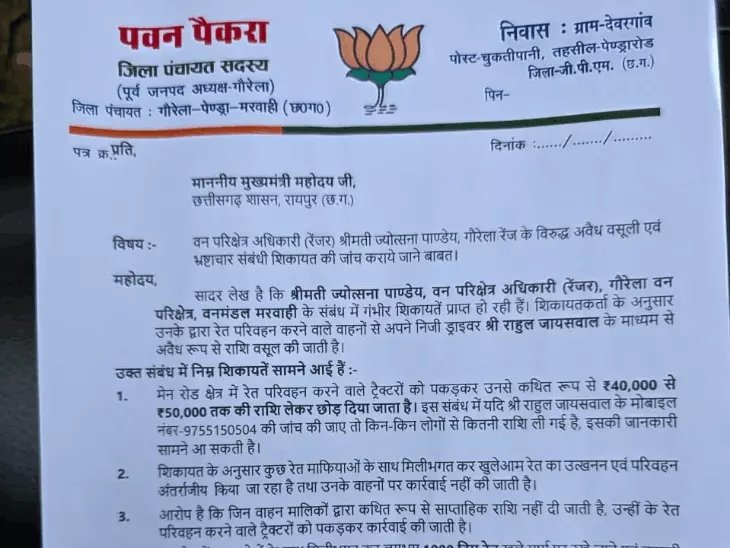 पवन पैकरा
जिला पंचायत सदस्य
(पूर्व जनपद अध्यक्ष-गौरेला)
जिला पंचायत : गौरेला-पेण्ड्रा-मरवाही (छ0ग0)
निवास : ग्राम-देवरगांव
पोस्ट-चुकतीपानी, तहसील-पेण्ड्रारोड
जिला-जी.पी.एम. (छ.ग.)
पिन-
पत्र क्र.प्रति,
दिनांक :....../......./.........
माननीय मुख्यमंत्री महोदय जी,
छत्तीसगढ़ शासन, रायपुर (छ.ग.)
विषय :- वन परिक्षेत्र अधिकारी (रेंजर) श्रीमती ज्योत्सना पाण्डेय, गौरेला रेंज के विरुद्ध अवैध वसूली एवं
भ्रष्टाचार संबंधी शिकायत की जांच कराये जाने बाबत।
महोदय,
सादर लेख है कि श्रीमती ज्योत्सना पाण्डेय, वन परिक्षेत्र अधिकारी (रेंजर), गौरेला वन
परिक्षेत्र, वनमंडल मरवाही के संबंध में गंभीर शिकायतें प्राप्त हो रही हैं। शिकायतकर्ता के अनुसार
उनके द्वारा रेत परिवहन करने वाले वाहनों से अपने निजी ड्राइवर श्री राहुल जायसवाल के माध्यम से
अवैध रूप से राशि वसूल की जाती है।
उक्त संबंध में निम्न शिकायतें सामने आई हैं :-
1. मेन रोड क्षेत्र में रेत परिवहन करने वाले ट्रैक्टरों को पकड़कर उनसे कथित रूप से ₹40,000 से
₹50,000 तक की राशि लेकर छोड़ दिया जाता है। इस संबंध में यदि श्री राहुल जायसवाल के मोबाइल
नंबर-9755150504 की जांच की जाए तो किन-किन लोगों से कितनी राशि ली गई है, इसकी जानकारी
सामने आ सकती है।
2. शिकायत के अनुसार कुछ रेत माफियाओं के साथ मिलीभगत कर खुलेआम रेत का उत्खनन एवं परिवहन
अंतर्राजीय किया जा रहा है तथा उनके वाहनों पर कार्रवाई नहीं की जाती है।
3. आरोप है कि जिन वाहन मालिकों द्वारा कथित रूप से साप्ताहिक राशि नहीं दी जाती है, उन्हीं के रेत
परिवहन करने वाले ट्रैक्टरों को पकड़कर कार्रवाई की जाती है।